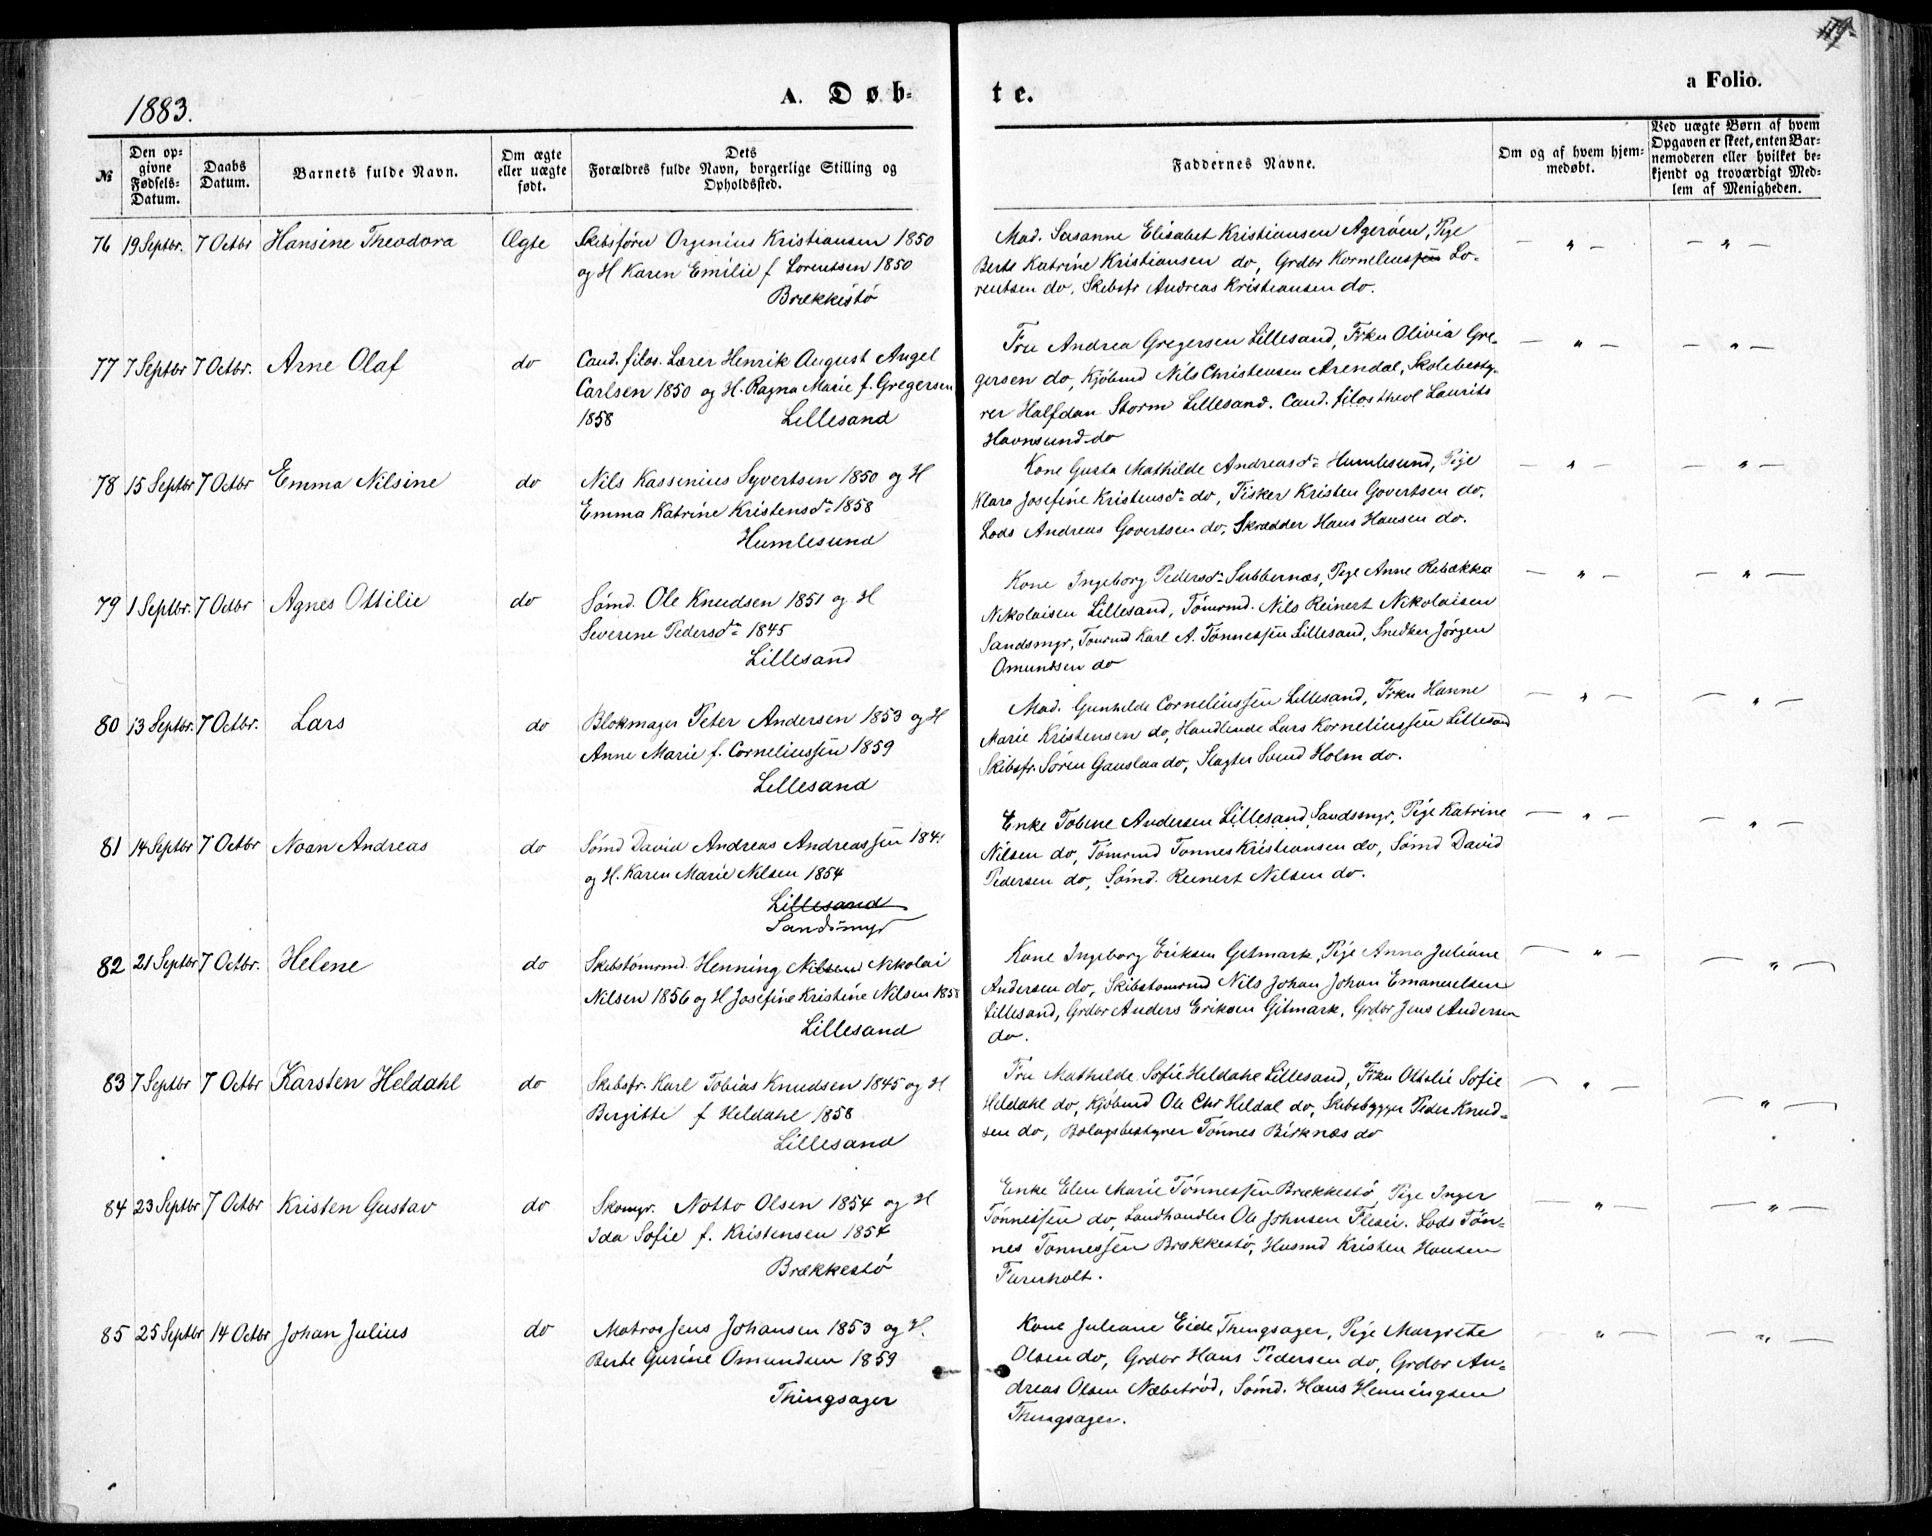 1883.
A. Døb-
te.
a Folio.
№
Den op-
givne
Fødsels-
Datum.
Daabs
Datum.
Barnets fulde Navn.
Om ægte
eller uægte
født.
Dets
Forældres fulde Navn, borgerlige Stilling og
Opholdssted.
Faddernes Navne.
Om og af hvem hjem-
medøbt.
Ved uægte Børn af hvem
Opgaven er skeet, enten Bar-
nemoderen eller hvilket be-
kjendt og troværdigt Med-
lem af Menigheden.
76 19 Septbr. 7 Octbr Hansine Theodora Ægte Skibsfører Orginius Kristiansen 1850
og H Karen Emilie f Lorentsen 1850
Brækkestø
Mad. Susanne Elisabet Kristiansen Agerøen, Pige
Berte Katrine Kristiansen do, Grdbr Kornelius Lo-
rentsen do. Skibsfr Andreas Kristiansen do.
— " — — " —
77 7 Septbr 7 Octbr. Arne Olaf do Cand. filos. Lærer Henrik August Angel
Carlsen 1850 og H. Ragna Marie f. Gregersen
1858 Lillesand
Fru Andrea Gregersen Lillesand, Frkn Olivia Gre-
gersen do, Kjøbmd Nils Christensen Arendal, Skolebesty-
rer Halfdan Storm Lillesand. Cand. filos theol Laurits
Havnsund do
— " — — " —
78 15 Septbr 7 Octbr Emma Nilsine do Nils Kassenius Syvertsen 1850 og H
Emma Katrine Kristensdr 1858
Humlesund
Kone Gusta Mathilde Andreasdr Humlesund, Pige
Klara Josefine Kristensdr do, Fisker Kristen Govertsen do.
Lods Andreas Govertsen do, Skrædder Hans Hansen do.
— " — — " —
79 1 Septbr. 7 Octbr Agnes Ottilie do Sømd. Ole Knudsen 1851 og H
Severine Pedersdr 1845
Lillesand
Kone Ingeborg Pedersdr Subbernæs, Pige Anne Rebækka
Nikolaisen Lillesand, Tømrmd. Nils Reinert Nikolaisen
Sandsmyr, Tomrmd Karl A. Tønnessen Lillesand, Snedker Jørgen
Omundsen do
— " — — " —
80 13 Septbr. 7 Octbr. Lars do Blokmager Peter Andersen 1853 og H
Anne Marie f. Corneliussen 1859
Lillesand
Mad. Gunhilde Corneliussen Lillesand, Frkn Hanne
Marie Kristensen do, Handlende Lars Korneliussen Lillesand
Skibsfr. Søren Gauslaa do, Slagter Svend Holm do.
— " — — " —
81 14 Septbr 7 Octbr Noan Andreas do Sømd David Andreas Andreassen 184
og H. Karen Marie Nilsen 1854
Lillesand
Sandsmyr
Enke Tobine Andersen Lillesand Sandsmyr, Pige Katrine
Nilsen do, Tømrmd Tonnes Kristiansen do, Sømd David
Pedersen do, Sømd. Reinert Nilsen do.
— " — — " —
82 21 Septbr 7 Octbr. Helene do Skibstømrmd. Henning Nilsen Nikolai
Nilsen 1856 og H Josefine Kristine Nilsen 1858
Lillesand
Kone Ingeborg Eriksen Gitmark, Pige Anna Juliane
Andersen do, Skibstomrmd Nils Johan Johan Emanuelsen
Lillesand, Grdbr Anders Eriksen Gitmark, Grdbr Jens Andersen
do.
— " — — " —
83 7 Septbr 7 Octbr Karsten Heldahl do Skibsfr. Karl Tobias Knudsen 1845 og H
Bergitte f Heldahl 1858
Lillesand
Fru Mathilde Sofie Heldahl Lillesand, Frkn Ottolie Sofie
Heldahl do, Kjøbmd Ole Chr Heldal do, Skibsbygger Peder Knud-
sen do, Bolagsbestyrer Tønnes Birknæs do
— " — — " —
84 23 Septbr 7 Octbr Kristen Gustav do Skomgr. Notto Olsen 1854 og H
Ida Sofie f. Kristensen 1854
Brækkestø
Enke Elen Marie Tønnessen Brækkestø, Pige Inger
Tønnessen do, Landhandler Ole Johnsen Flesei. Lods Tøn-
nes Tonnessen Brækkestø, Husmd Kristen Hansen
Fureholt.
— " — — " —
85 25 Septbr 14 Octbr Johan Julius do Matros Jens Johansen 1853 og H.
Berte Gurine Omundsen 1859
Thingsager
Kone Juliane Eide Thingsager, Pige Margrete
Olsen do, Grdbr Hans Pedersen do, Grdbr An-
dreas Olsen Næbstrød, Sømd. Hans Henningsen
Thingsager.
— " — — " —